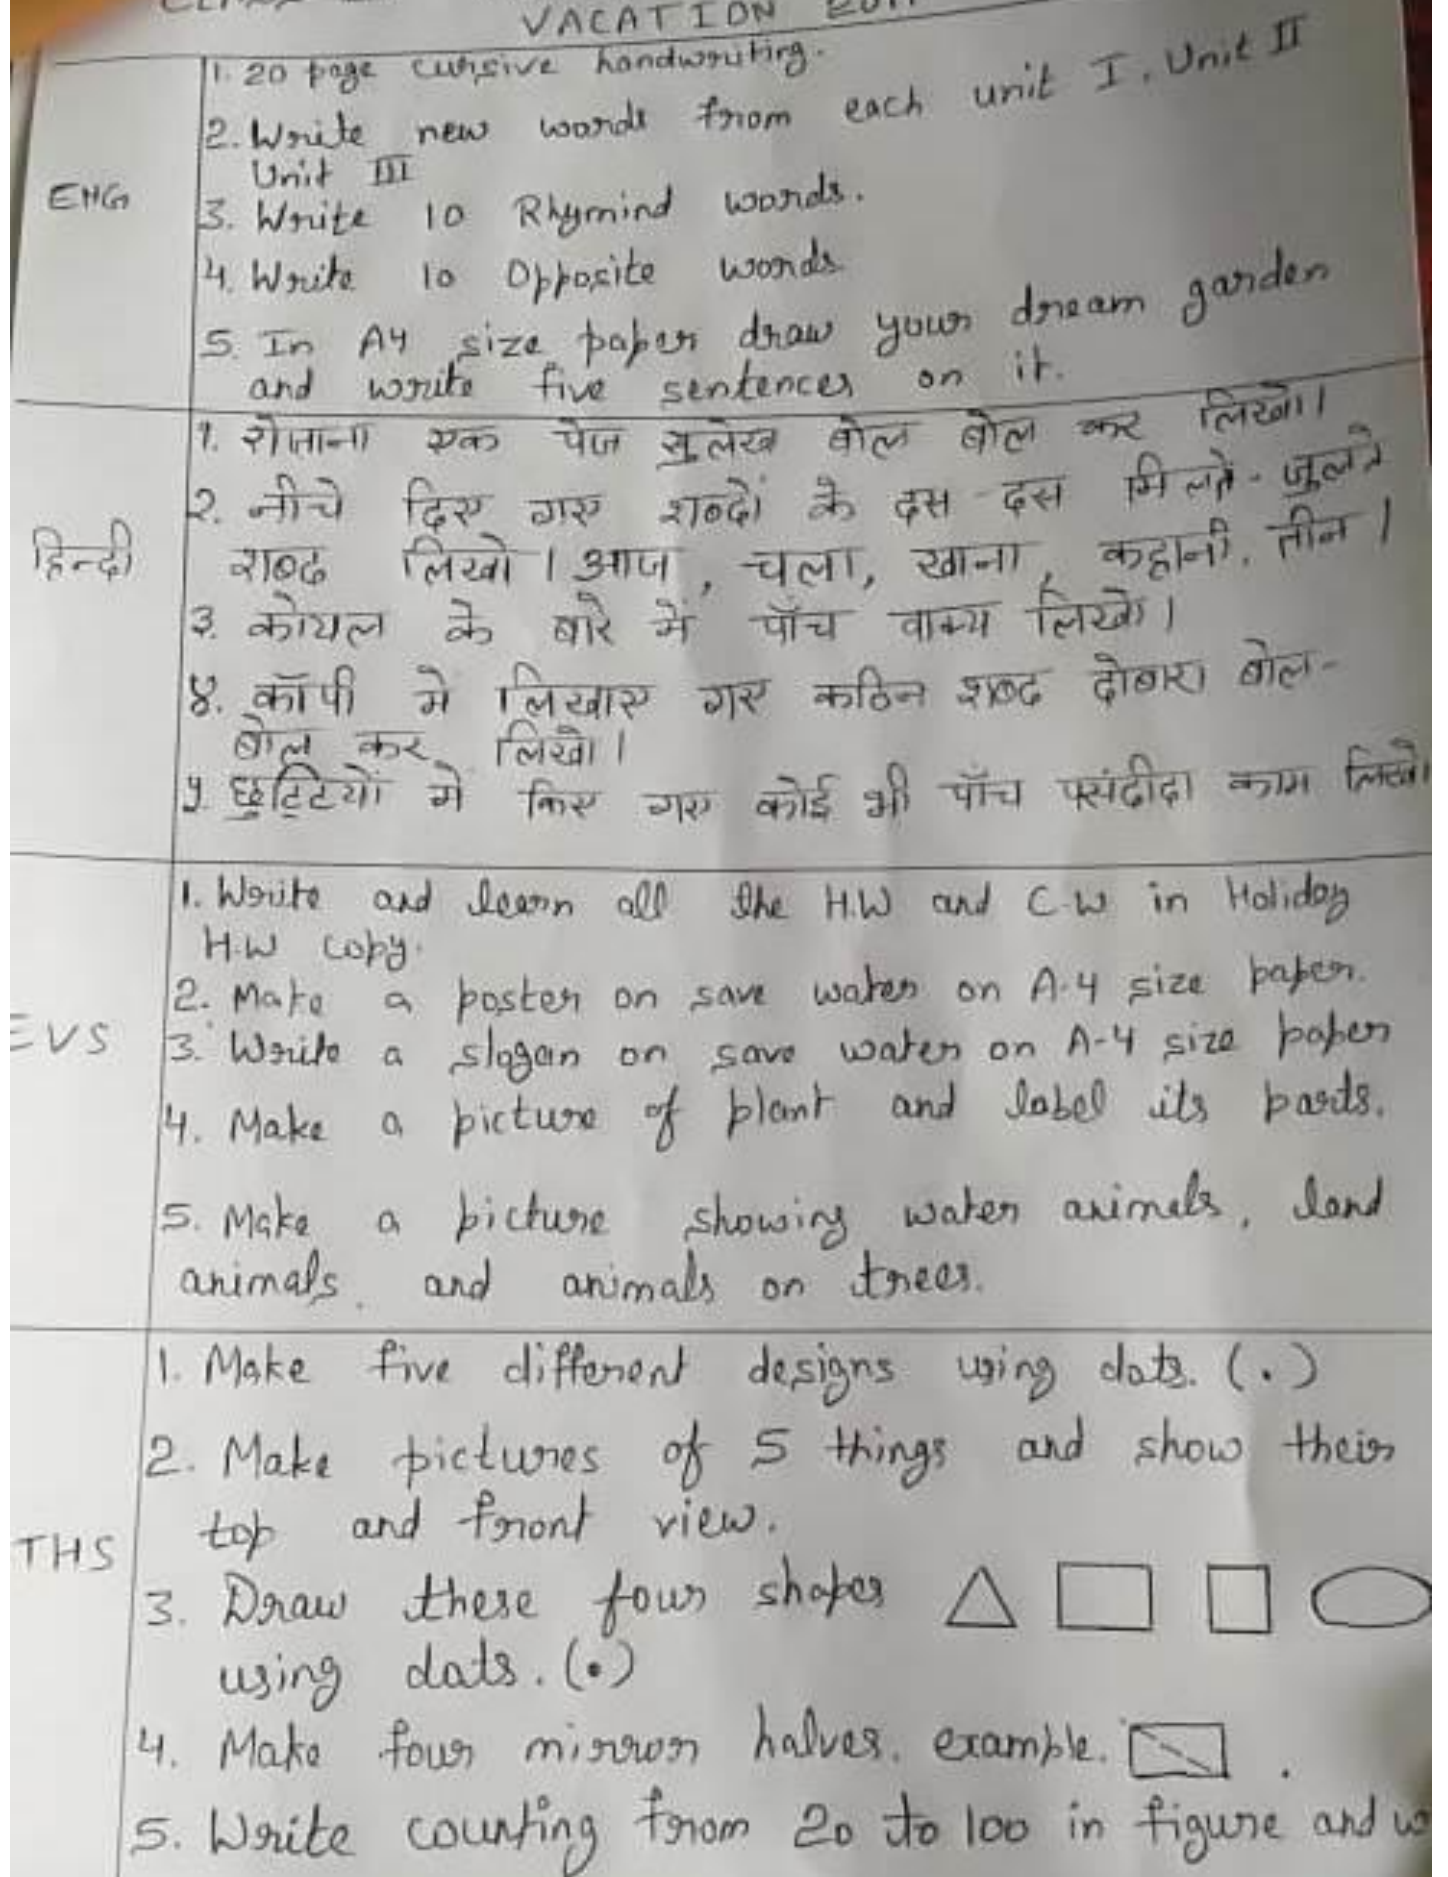 VACATION
1. 20 page cursive handwriting.
2. Write new words from each unit I, Unit II
Unit III
ENG
3. Write 10 Rhymind words.
4. Write 10 Opposite words
5. In A4 size paper draw your dream garden
and write five sentences on it.
१. रोजाना एक पेज सुलेख बोल बोल कर लिखो।
२. नीचे दिए गए शब्दों के दस-दस मिलते-जुलते
हिन्दी
शब्द लिखो। आज, चला, खाना, कहानी, तीन।
३. कोयल के बारे में पाँच वाक्य लिखो।
४. कॉपी में लिखाए गए कठिन शब्द दोबारा बोल-
बोल कर लिखो।
५. छुट्टियों में किए गए कोई भी पाँच पसंदीदा काम लिखो।
1. Write and learn all the H.W and C.W in Holiday
H.W copy.
2. Make a poster on save water on A-4 size paper.
EVS
3. Write a slogan on save water on A-4 size paper
4. Make a picture of plant and label its parts.
5. Make a picture showing water animals, land
animals, and animals on trees.
1. Make five different designs using dots. (.)
2. Make pictures of 5 things and show their
top and front view.
THS
3. Draw these four shapes
using dots. (•)
4. Make four mirror halves. example. .
5. Write counting from 20 to 100 in figure and